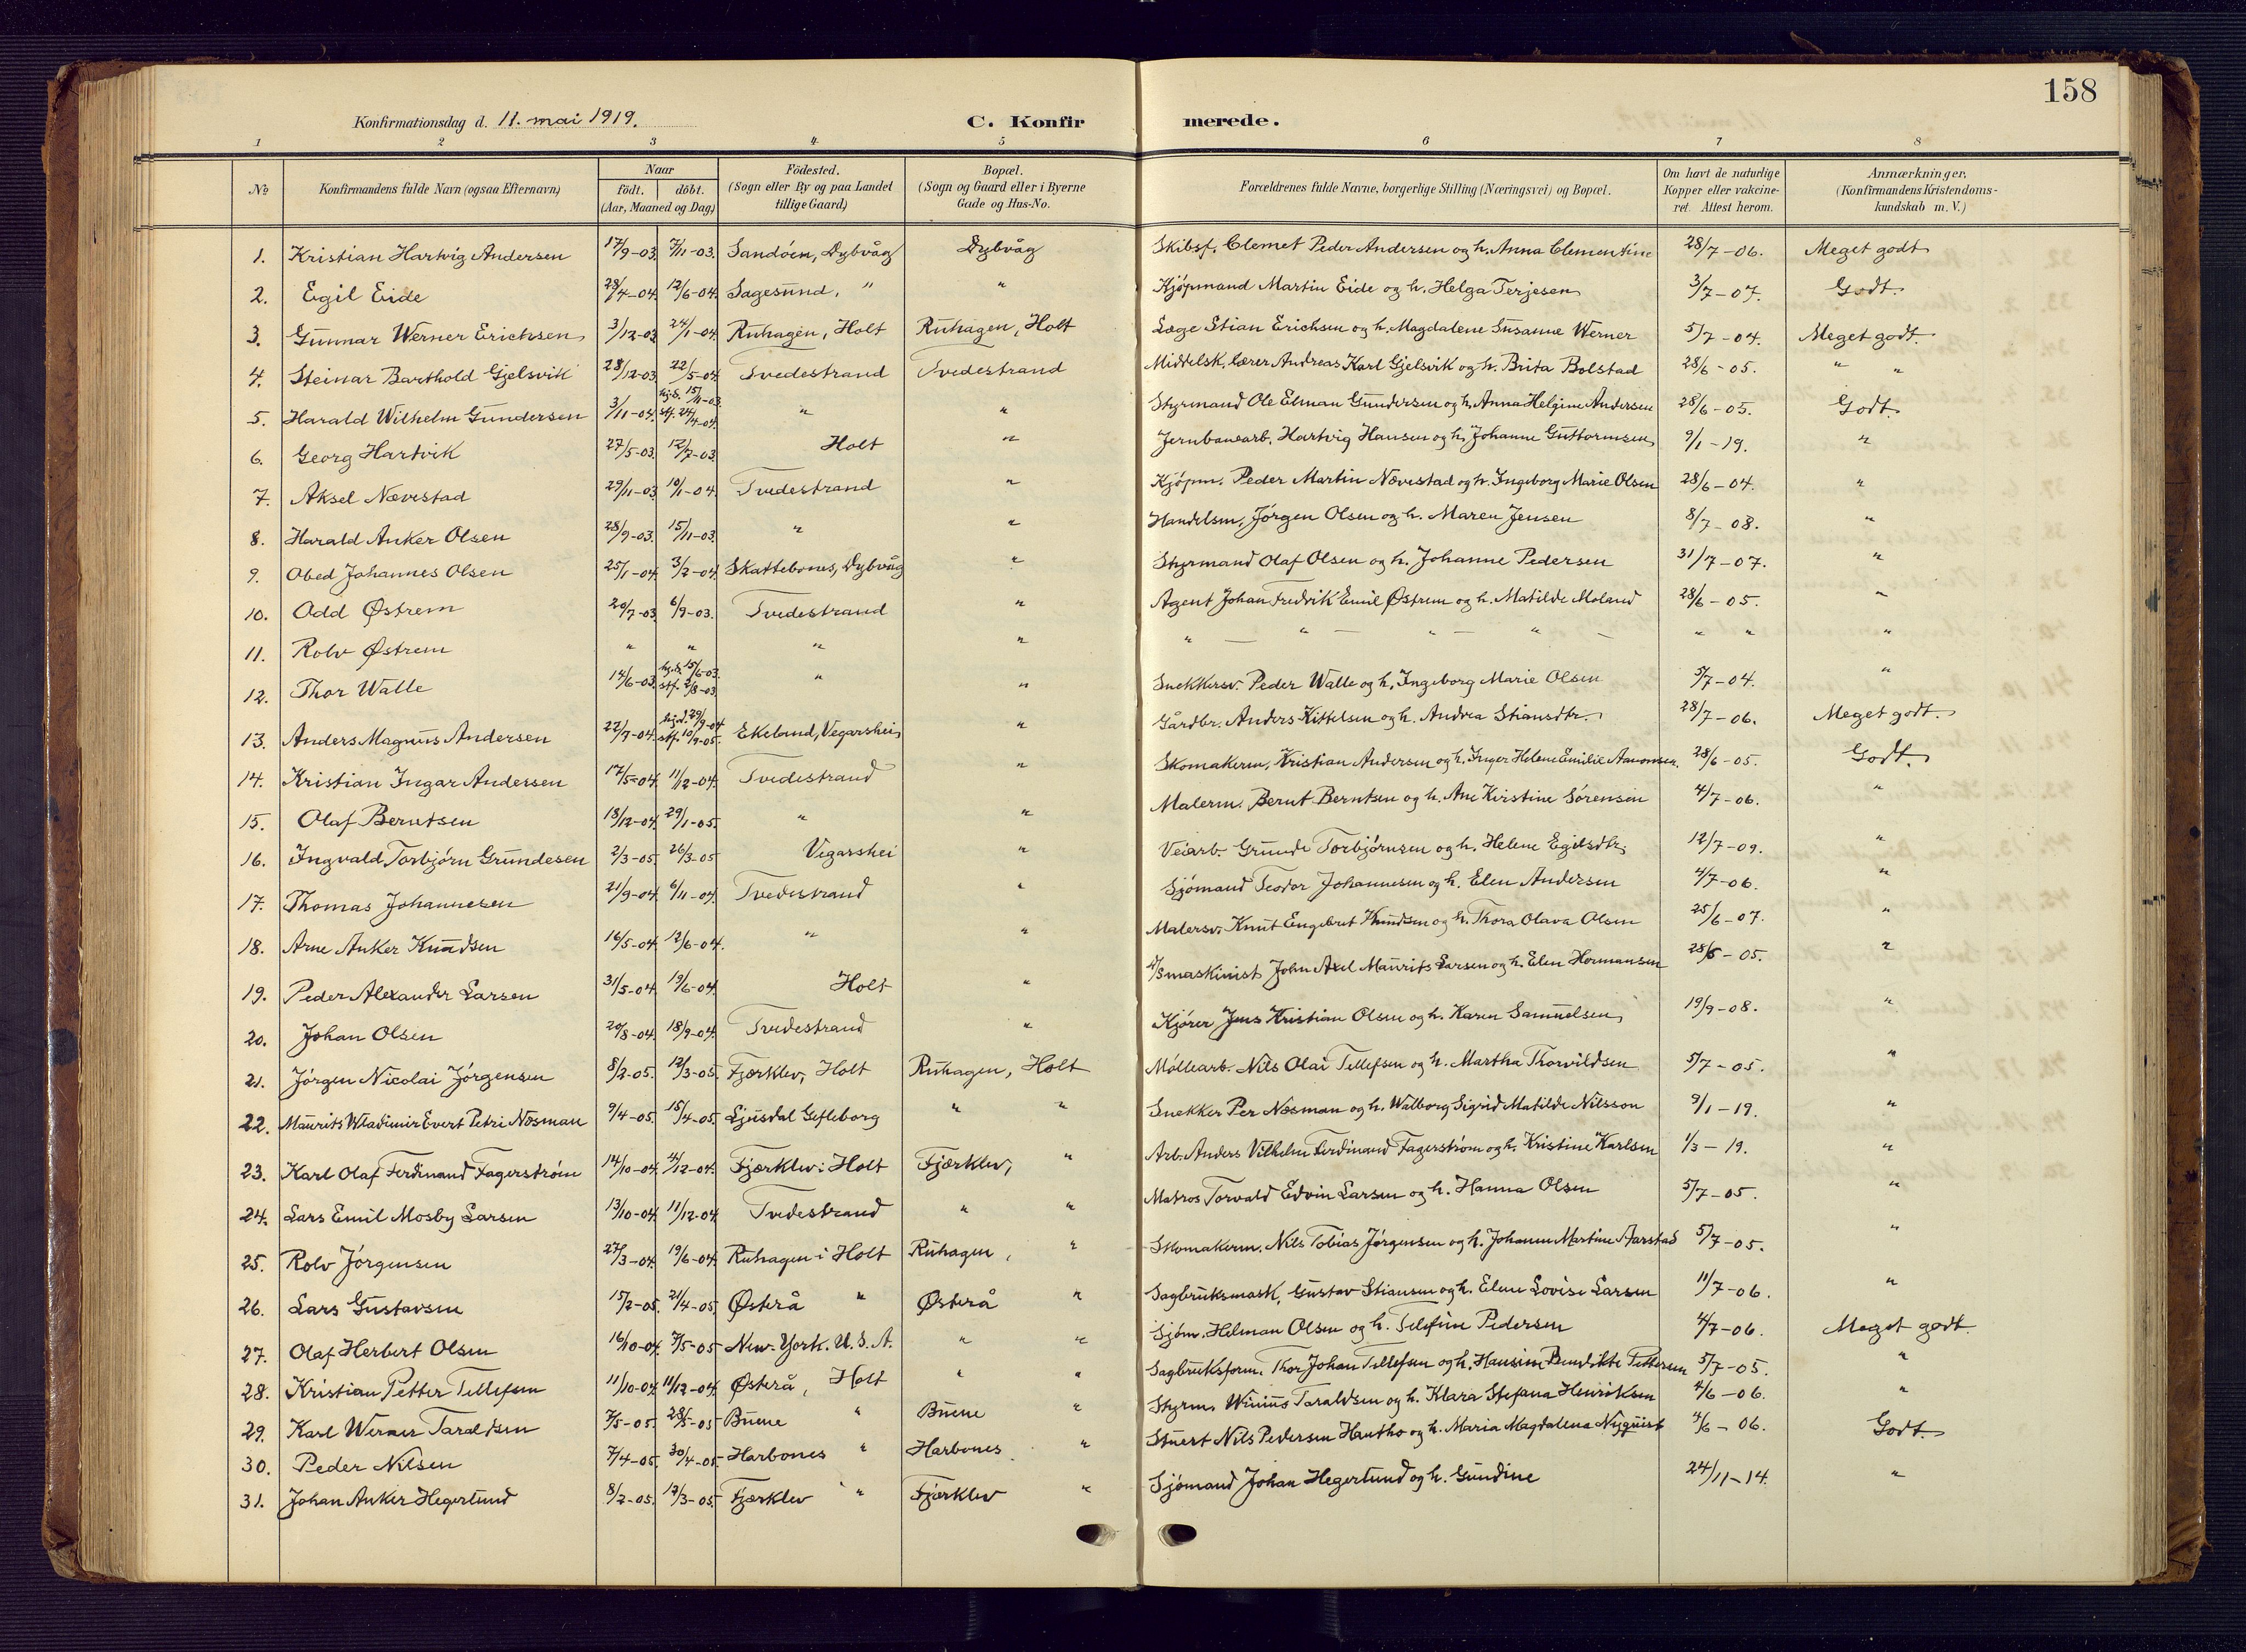 158
Konfirmationsdag d. 11. mai 1919. C. Konfirmerede.
1 2 3 4 5 6 7 8
No Konfirmandens fulde Navn (ogsaa Efternavn) Naar født. døbt. (Aar, Maaned og Dag) Födested. (Sogn eller By og paa Landet tillige Gaard) Bopæl. (Sogn og Gaard eller i Byerne Gade og Hus-No. Forældrenes fulde Navne, borgerlige Stilling (Næringsvei) og Bopæl. Om havt de naturlige Kopper eller vakcineret. Attest herom. Anmærkninger. (Konfirmandens Kristendomskundskab m. V.)
1. Kristian Hartvig Andersen 17/9-03. 7/11-03. Sandöen, Dybvåg Dybvåg Skibsf. Clemet Peder Andersen og h. Anna Clementine 28/7-06. Meget godt
2. Egil Eide 28/4-04. 12/6-04. Sagesund, " " Kjøpmand Martin Eide og h. Helga Terjesen 3/7-07. Godt.
3. Gunnar Werner Erichsen 3/12-03 24/1-04. Ruhagen, Holt Ruhagen, Holt Læge Stian Erichsen og h. Magdalene Susanne Werner 5/7-04. Meget godt.
4. Steinar Barthold Gjelsvik 28/12-03. 22/5-04. Tvedestrand Tvedestrand Middelsk. lærer Andreas Karl Gjelsvik og h. Brita Bolstad 28/6-05. " "
5. Harald Wilhelm Gundersen 3/11-04. hj.d. 15/11-03. stf. 24/4-04. " " Styrmand Ole Elman Gundersen og h. Anna Helgine Andersen 28/6-05. Godt.
6. Georg Hartvik 27/5-03. 12/7-03. Holt " Jernbanearb. Hartvig Hansen og h. Johanne Guttormsen 9/1-19. "
7. Aksel Nævestad 29/11-03 10/1-04. Tvedestrand " Kjøpm. Peder Martin Nævestad og h. Ingeborg Marie Olsen 28/6-04. "
8. Harald Anker Olsen 28/9-03. 15/11-03. " " Handelsm. Jörgen Olsen og h. Maren Jensen 8/7-08. "
9. Obed Johannes Olsen 25/1-04. 3/2-04. Skattebones, Dybvåg " Styrmand Olaf Olsen og h. Johanne Pedersen 31/7-07. "
10. Odd Østrem 20/7-03 6/9-03. Tvedestrand " Agent Johan Fredrik Emil Østrem og h. Matilde Moland 28/6-05. "
11. Rolv Østrem " " " " " — " — " — " — " " "
12. Thor Walle 14/6-03. hj.d. 15/6-03. stf. 2/8-03 " " Snekkersv. Peder Walle og h. Ingeborg Marie Olsen 5/7-04. "
13. Anders Magnus Andersen 22/7-04. hj.d. 29/9-04 stf. 10/9-05. Ekeland, Vegarshei " Gårdbr. Anders Kittelsen og h. Andrea Stiansdtr. 28/7-06. Meget godt.
14. Kristian Ingar Andersen 17/5-04. 11/12-04. Tvedestrand " Skomakerm. Kristian Andersen og h. Inger Helene Emilie Aanonsen. 28/6-05. Godt.
15. Olaf Berntsen 18/12-04. 29/1-05. " " Malerm. Bernt Berntsen og h. Ane Kirstine Sörensen 4/7-06. "
16. Ingvald Torbjörn Grundesen 2/3-05. 26/3-05 Vegarshei " Veiarb. Grunde Torbjörnsen og h. Helene Egilsdtr. 12/7-09. "
17. Thomas Johannesen 21/9-04. 6/11-04. Tvedestrand " Sjömand Teodor Johannesen og h. Elen Andersen 4/7-06. "
18. Arne Anker Knudsen 16/5-04. 12/6-04. " " Malersv. Knut Engebret Knudsen og h. Thora Olava Olsen 25/6-07. "
19. Peder Alexander Larsen 31/5-04. 19/6-04. Holt " D/Smaskinist John Axel Maurits Larsen og h. Elen Hermansen 28/6-05. "
20. Johan Olsen 20/8-04. 18/9-04. Tvedestrand " Kjörer Jens Kristian Olsen og h. Karen Samuelsen 19/9-08. "
21. Jörgen Nicolai Jörgensen 8/2-05. 12/3-05. Fjærklev, Holt Ruhagen, Holt Møllearb. Nils Olai Tellefsen og h. Martha Thorvildsen 5/7-05. "
22. Maurits Wladimir Evert Petri Nosman 9/4-05. 15/4-05. Ljusdal Gefleborg " " Snekker Per Nosman og h. Walborg Sigrid Matilde Nilsson 9/1-19. "
23. Karl Olaf Ferdinand Fagerström 14/10-04. 4/12-04. Fjærklev i Holt Fjærklev, " Arb. Anders Vilhelm Ferdinand Fagerström og h. Kristine Karlsen 1/3-19. "
24. Lars Emil Mosby Larsen 13/10-04. 11/12-04. Tvedestrand " " Matros Torvald Edvin Larsen og h. Hanna Olsen 5/7-05. "
25. Rolv Jörgensen 27/3-04. 19/6-04. Ruhagen i Holt Ruhagen, " Skomakerm. Nils Tobias Jörgensen og h. Johanne Martine Aarstad 5/7-05. "
26. Lars Gustavsen 15/2-05. 21/4-05. Østerå " Østerå " Sagbruksmask. Gustav Stiansen og h. Elene Lovise Larsen 11/7-06. "
27. Olaf Herbert Olsen 16/10-04. 7/5-05 New-York. U.S.A. " " Sjöm. Helman Olsen og h. Telefine Pedersen 4/7-06. Meget godt.
28. Kristian Petter Tellefsen 11/10-04. 11/12-04. Østerå, Holt " " Sagbruksform. Thor Johan Tellefsen og h. Hansine Benedikte Pettersen 5/7-05. "
29. Karl Werner Taraldsen 7/5-05. 28/5-05 Buene " Buene " Styrm. Winius Taraldsen og h. Klara Stefana Henriksen 4/6-06. "
30. Peder Nilsen 7/4-05. 30/4-05. Harbones " Harbones " Stuert Nils Pedersen Hantho og h. Maria Magdalena Nyquist 4/6-06. Godt.
31. Johan Anker Hegerlund 8/2-05. 12/3-05. Fjærklev " Fjærklev " Sjömand Johan Hegerlund og h. Gundine 24/11-14. "